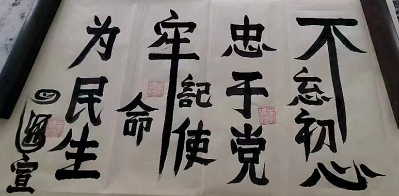 不忘初心
忠于党
牢記使命
为民生